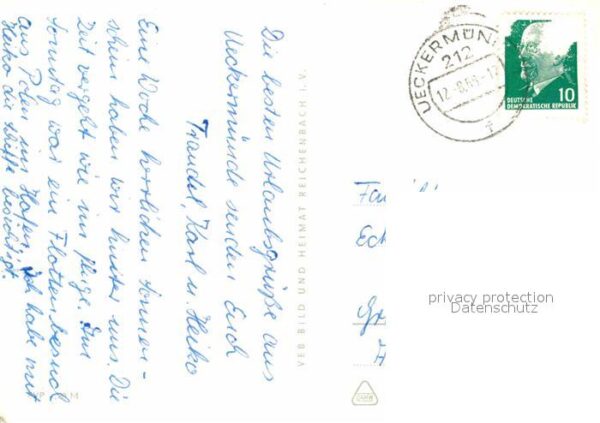 Die besten Urlaubsgrüße aus
Ueckermünde senden Euch
Traudel, Karl u. Heiko
Eine Woche herrlichen Sonnen-
schein haben wir hinter uns. Die
Zeit vergeht wie im Fluge. Am
Sonntag war ein Flottenbesuch
aus Polen im Hafen, ich habe mit
Heiko die Schiffe besichtigt.
VEB BILD UND HEIMAT REICHENBACH I. V.
UECKERMÜN
212
DEUTSCHE
DEMOKRATISCHE REPUBLIK
10
privacy protection
Datenschutz